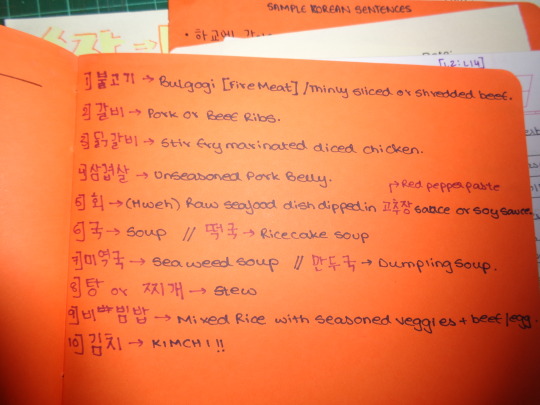 SAMPLE KOREAN SENTENCES
[1.2: L14]
1] 불고기 → Bulgogi [Fire Meat] / thinly sliced or shredded beef.
2] 갈비 → Pork or Beef Ribs.
3] 닭갈비 → Stir fry marinated diced chicken.
4] 삼겹살 → Unseasoned Pork Belly.
→ Red pepper paste
5] 회 → (Hweh) Raw seafood dish dipped in 고추장 sauce or soy sauce.
6] 국 → Soup // 떡국 → Rice cake soup
7] 미역국 → Seaweed soup // 만두국 → Dumpling soup.
8] 탕 or 찌개 → Stew
9] 비빔밥 → Mixed Rice with seasoned veggies + beef/egg.
10] 김치 → KIMCHI!!